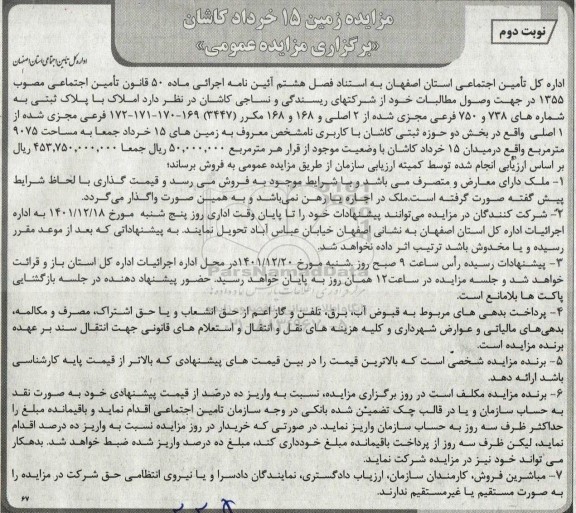 مزایده زمین ۱۵ خرداد کاشان
«برگزاری مزایده عمومی»
نوبت دوم
اداره کل تامین اجتماعی استان اصفهان
اداره کل تأمین اجتماعی استان اصفهان به استناد فصل هشتم آئین نامه اجرائی ماده ۵۰ قانون تأمین اجتماعی مصوب
۱۳۵۵ در جهت وصول مطالبات خود از شرکتهای ریسندگی و نساجی کاشان در نظر دارد املاک با پلاک ثبتی به
شماره های ۷۳۸ و ۷۵۰ فرعی مجزی شده از ۲ اصلی و ۱۶۸ و ۱۶۸ مکرر (۳۴۴۷) ۱۶۹-۱۷۰-۱۷۱-۱۷۲ فرعی مجزی شده از
۱ اصلی واقع در بخش دو حوزه ثبتی کاشان با کاربری نامشخص معروف به زمین های ۱۵ خرداد جمعا به مساحت ۹۰۷۵
مترمربع واقع درمیدان ۱۵ خرداد کاشان با وضعیت موجود از قرار هر مترمربع ۵۰,۰۰۰,۰۰۰ ریال جمعا ۴۵۳,۷۵۰,۰۰۰,۰۰۰ ریال
بر اساس ارزیابی انجام شده توسط کمیته ارزیابی سازمان از طریق مزایده عمومی به فروش برساند؛
۱- ملک دارای معارض و متصرف می باشد و با شرایط موجود به فروش می رسد و قیمت گذاری با لحاظ شرایط
پیش گفته صورت گرفته است.ملک در اجاره یا رهن نمی‌باشد و به همین صورت واگذار می‌گردد.
۲- شرکت کنندگان در مزایده می‌توانند پیشنهادات خود را تا پایان وقت اداری روز پنج شنبه مورخ ۱۴۰۱/۱۲/۱۸ به اداره
اجرائیات اداره کل استان اصفهان به نشانی اصفهان خیابان عباس آباد تحویل نمایند. به پیشنهاداتی که بعد از موعد مقرر
رسیده و یا مخدوش باشد ترتیب اثر داده نخواهد شد.
۳- پیشنهادات رسیده رأس ساعت ۹ صبح روز شنبه مورخ ۱۴۰۱/۱۲/۲۰در محل اداره اجرائیات اداره کل استان باز و قرائت
خواهد شد و جلسه مزایده در ساعت۱۲ همان روز به پایان خواهد رسید. حضور پیشنهاد دهنده در جلسه بازگشایی
پاکت ها بلامانع است.
ParsNamadData
۴- پرداخت بدهی های مربوط به قبوض آب، برق، تلفن و گاز اعم از حق انشعاب و یا حق اشتراک، مصرف و مکالمه،
بدهی‌های مالیاتی و عوارض شهرداری و کلیه هزینه های نقل و انتقال و استعلام های قانونی جهت انتقال سند بر عهده
برنده مزایده است.
۵- برنده مزایده شخصی است که بالاترین قیمت را در بین قیمت های پیشنهادی که بالاتر از قیمت پایه کارشناسی
باشد ارائه دهد.
۶- برنده مزایده مکلف است در روز برگزاری مزایده، نسبت به واریز ده درصد از قیمت پیشنهادی خود به صورت نقد
به حساب سازمان و یا در قالب چک تضمین شده بانکی در وجه سازمان تامین اجتماعی اقدام نماید و باقیمانده مبلغ را
حداکثر ظرف سه روز به حساب سازمان واریز نماید. در صورتی که خریدار در روز مزایده نسبت به واریز ده درصد اقدام
نماید، لیکن ظرف سه روز از پرداخت باقیمانده مبلغ خودداری کند، مبلغ ده درصد واریز شده ضبط خواهد شد. بدهکار
می تواند خود نیز در مزایده شرکت نماید.
۷- مباشرین فروش، کارمندان سازمان، ارزیاب دادگستری، نمایندگان دادسرا و یا نیروی انتظامی حق شرکت در مزایده را
به صورت مستقیم یا غیرمستقیم ندارند.
۶۷